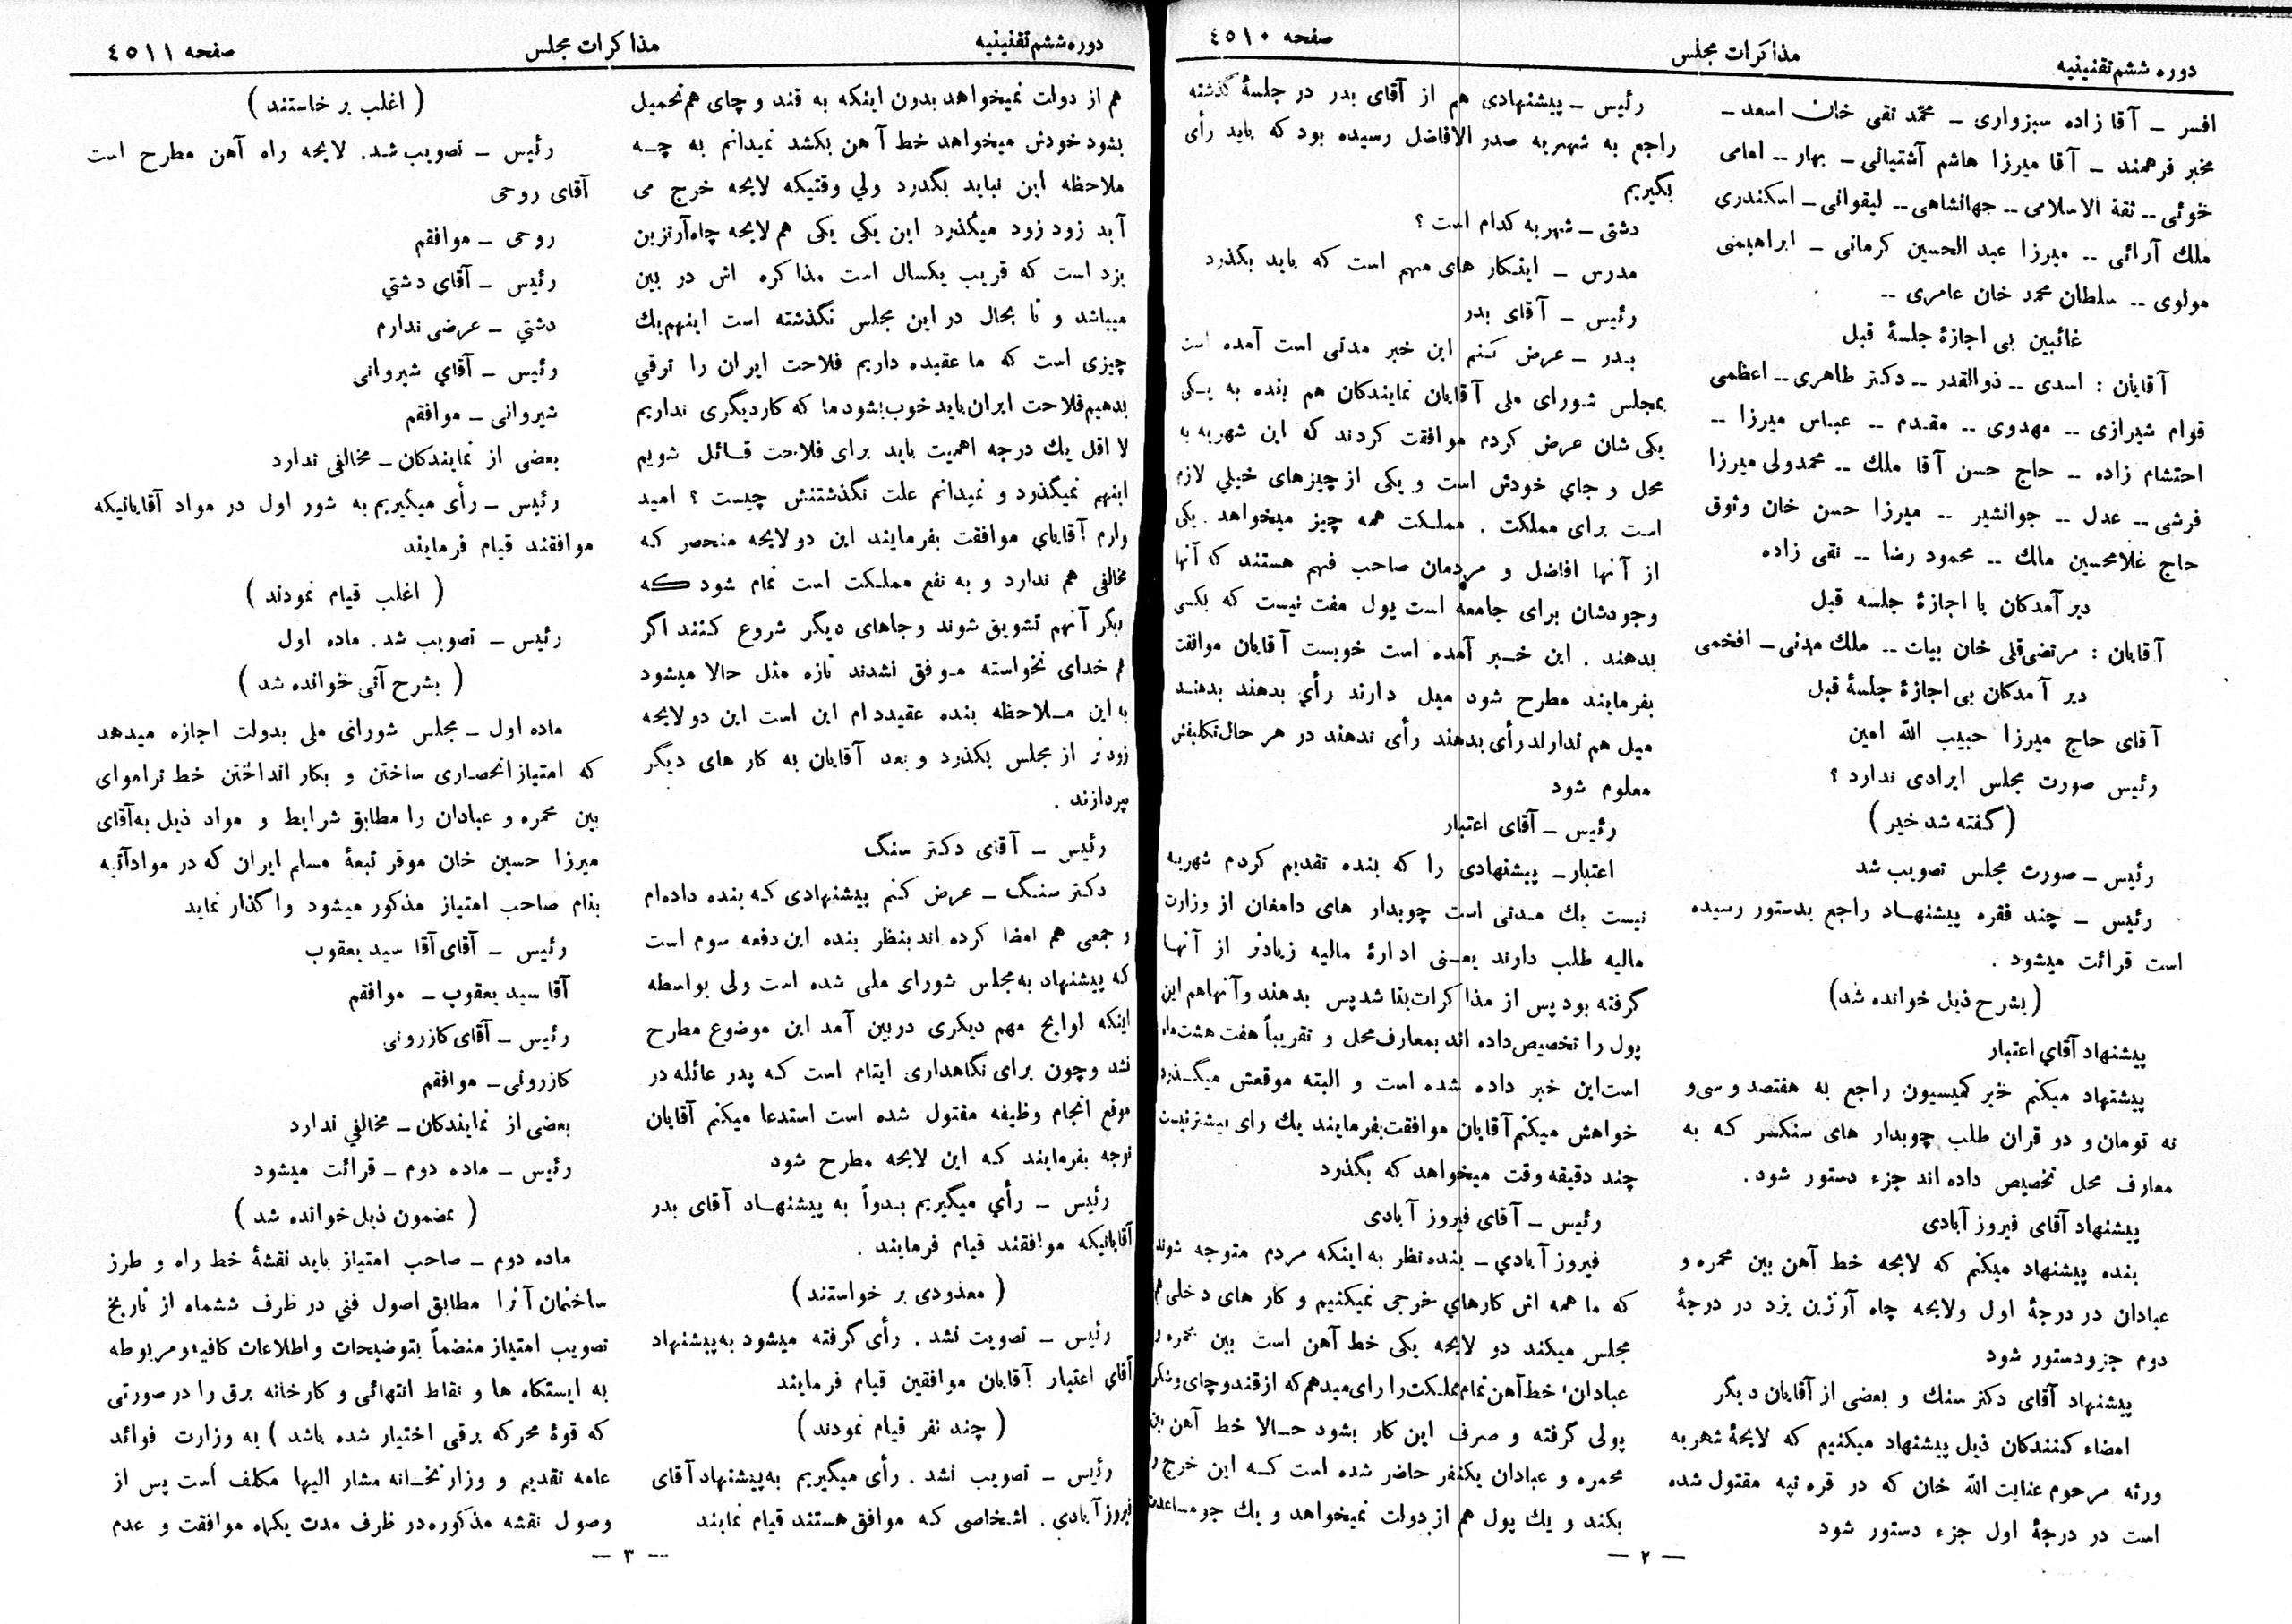 دوره ششم تقنینیه
مذاکرات مجلس
صفحه ٤٥١٠
افسر ـ آقا زاده سبزواری ـ محمد تقی خان اسعد ـ
مخبر فرهمند ـ آقا میرزا هاشم آشتیانی ـ بهار ـ امامی
خوئی ـ ثقة الاسلامی ـ جهانشاهی ـ لیقوانی ـ اسکندري
ملك آرائی ـ میرزا عبد الحسین کرمانی ـ ابراهیمی
مولوی ـ سلطان محمد خان عامری ـ
غائبین بی اجازهٔ جلسهٔ قبل
آقایان : اسدی ـ ذوالقدر ـ دکتر طاهری ـ اعظمی
قوام شیرازی ـ مهدوی ـ مقدم ـ عباس میرزا ـ
احتشام زاده ـ حاج حسن آقا ملك ـ محمدولي میرزا
فرشی ـ عدل ـ جوانشیر ـ میرزا حسن خان وثوق
حاج غلامحسین ملك ـ محمود رضا ـ تقی زاده
دیر آمدکان با اجازهٔ جلسه قبل
آقایان : مرتضی قلی خان بیات ـ ملك مدنی ـ افخمی
دیر آمدکان بی اجازهٔ جلسهٔ قبل
آقای حاج میرزا حبیب الله امین
رئیس صورت مجلس ایرادی ندارد ؟
( گفته شد خیر )
رئیس ـ صورت مجلس تصویب شد
رئیس ـ چند فقره پیشنهاد راجع بدستور رسیده
است قرائت میشود .
( بشرح ذیل خوانده شد )
پیشنهاد آقاي اعتبار
پیشنهاد میکنم خبر کمیسیون راجع به هفتصد و سی و
نه تومان و دو قران طلب چوبدار های سنگسر که به
معارف محل تخصیص داده اند جزء دستور شود .
پیشنهاد آقای فیروز آبادی
بنده پیشنهاد میکنم که لایحه خط آهن بین محمره و
عبادان در درجهٔ اول ولایحه چاه آرتزین یزد در درجهٔ
دوم جزو دستور شود
پیشنهاد آقای دکتر سنك و بعضی از آقایان دیگر
امضاء کنندکان ذیل پیشنهاد میکنیم که لایحهٔ شهریه
ورثه مرحوم عنایت الله خان که در قره تپه مقتول شده
است در درجهٔ اول جزء دستور شود
رئیس ـ پیشنهادی هم از آقای بدر در جلسهٔ گذشته
راجع به شهریه صدر الافاضل رسیده بود که باید رأی
بگیریم
دشتی ـ شهریه کدام است ؟
مدرس ـ اینکار های مهم است که باید بگذرد
رئیس ـ آقای بدر
بدر ـ عرض کنم این خبر مدتی است آمده است
بمجلس شورای ملی آقایان نمایندکان هم بنده به یکی
یکی شان عرض کردم موافقت کردند که این شهریه به
محل و جاي خودش است و یکی از چیزهای خیلي لازم
است برای مملکت . مملکت همه چیز میخواهد . یکی
از آنها افاضل و مردمان صاحب فهم هستند که آنها
وجودشان برای جامعه است پول مفت نیست که بکسی
بدهند . این خبر آمده است خوبست آقایان موافقت
بفرمایند مطرح شود میل دارند رأي بدهند بدهند
میل هم ندارند رأی بدهند رأی ندهند در هر حال تکلیفش
معلوم شود
رئیس ـ آقای اعتبار
اعتبار ـ پیشنهادی را که بنده تقدیم کردم شهریه
نیست یك مدتی است چوبدار های دامغان از وزارت
مالیه طلب دارند یعنی ادارهٔ مالیه زیادتر از آنها
گرفته بود پس از مذاکرات بنا شد پس بدهند و آنها هم این
پول را تخصیص داده اند بمعارف محل و تقریباً هفت هشت ماه
است این خبر داده شده است و البته موقعش میگذرد
خواهش میکنم آقایان موافقت بفرمایند یك رای بیشتر نیست
چند دقیقه وقت میخواهد که بگذرد
رئیس ـ آقای فیروز آبادی
فیروز آبادي ـ بنده نظر به اینکه مردم متوجه شوند
که ما همه اش کارهاي خرجی نمیکنیم و کار های دخلی هم
مجلس میکند دو لایحه یکی خط آهن است بین محمره و
عبادان خط آهن تمام مملکت را رای میدهم که از قند و چای و شکر
پولی گرفته و صرف این کار بشود حالا خط آهن بین
محمره و عبادان یکنفر حاضر شده است که این خرج را
بکند و یك پول هم از دولت نمیخواهد و یك جو مساعدت
ـ ٢ ـ
دوره ششم تقنینیه
مذاکرات مجلس
صفحه ٤٥١١
هم از دولت نمیخواهد بدون اینکه به قند و چای هم تحمیل
بشود خودش میخواهد خط آهن بکشد نمیدانم به چه
ملاحظه این نباید بگذرد ولي وقتیکه لایحه خرج می
آید زود زود میگذرد این یکی یکی هم لایحه چاه آرتزین
یزد است که قریب یکسال است مذاکره اش در بین
میباشد و تا بحال در این مجلس نگذشته است اینهم یك
چیزی است که ما عقیده داریم فلاحت ایران را ترقي
بدهیم فلاحت ایران باید خوب بشود ما که کار دیگری نداریم
لا اقل یك درجه اهمیت باید برای فلاحت قائل شویم
اینهم نمیگذرد و نمیدانم علت نگذشتنش چیست ؟ امید
وارم آقایاي موافقت بفرمایند این دو لایحه منحصر که
مخالفی هم ندارد و به نفع مملکت است تمام شود که
دیگر آنهم تشویق شوند و جاهای دیگر شروع کنند اگر
هم خدای نخواسته موفق نشدند تازه مثل حالا میشود
به این ملاحظه بنده عقیده ام این است این دو لایحه
زودتر از مجلس بکذرد و بعد آقایان به کار های دیگر
بپردازند .
رئیس ـ آقای دکتر سنگ
دکتر سنگ ـ عرض کنم پیشنهادی که بنده داده ام
و جمعی هم امضا کرده اند بنظر بنده این دفعه سوم است
که پیشنهاد به مجلس شورای ملی شده است ولی بواسطه
اینکه لوایح مهم دیکری در بین آمد این موضوع مطرح
نشد و چون برای نگاهداری ایتام است که پدر عائله در
موقع انجام وظیفه مقتول شده است استدعا میکنم آقایان
توجه بفرمایند که این لایحه مطرح شود
رئیس ـ رأي میگیریم بدواً به پیشنهاد آقای بدر
آقایانیکه موافقند قیام فرمایند .
( معدودی بر خواستند )
رئیس ـ تصویت نشد . رأی گرفته میشود به پیشنهاد
آقاي اعتبار آقایان موافقین قیام فرمایند
( چند نفر قیام نمودند )
رئیس ـ تصویب نشد . رأی میگیریم به پیشنهاد آقای
فیروز آبادي . اشخاصی که موافق هستند قیام نمایند
( اغلب بر خاستند )
رئیس ـ تصویب شد . لایحه راه آهن مطرح است
آقای روحی
روحی ـ موافقم
رئیس ـ آقاي دشتي
دشتي ـ عرضی ندارم
رئیس ـ آقاي شیروانی
شیروانی ـ موافقم
بعضی از نمایندکان ـ مخالفی ندارد
رئیس ـ رأی میگیریم به شور اول در مواد آقایانیکه
موافقند قیام فرمایند
( اغلب قیام نمودند )
رئیس ـ تصویب شد . ماده اول
( بشرح آتی خوانده شد )
ماده اول ـ مجلس شورای ملی بدولت اجازه میدهد
که امتیاز انحصاری ساختن و بکار انداختن خط تراموای
بین محمره و عبادان را مطابق شرایط و مواد ذیل به آقای
میرزا حسین خان موقر تبعهٔ مسلم ایران که در مواد آتیه
بنام صاحب امتیاز مذکور میشود واگذار نماید
رئیس ـ آقای آقا سید یعقوب
آقا سید یعقوب ـ موافقم
رئیس ـ آقای کازرونی
کازرونی ـ موافقم
بعضی از نمایندکان ـ مخالفي ندارد
رئیس ـ ماده دوم ـ قرائت میشود
( بمضمون ذیل خوانده شد )
ماده دوم ـ صاحب امتیاز باید نقشهٔ خط راه و طرز
ساختمان آنرا مطابق اصول فني در ظرف ششماه از تاریخ
تصویب امتیاز منضماً بتوضیحات و اطلاعات کافیه و مربوطه
به ایستکاه ها و نقاط انتهائی و کارخانه برق را در صورتی
که قوهٔ محرکه برقی اختیار شده باشد ) به وزارت فوائد
عامه تقدیم و وزارتخانه مشار الیها مکلف است پس از
وصول نقشه مذکوره در ظرف مدت یکماه موافقت و عدم
ـ ٣ ـ